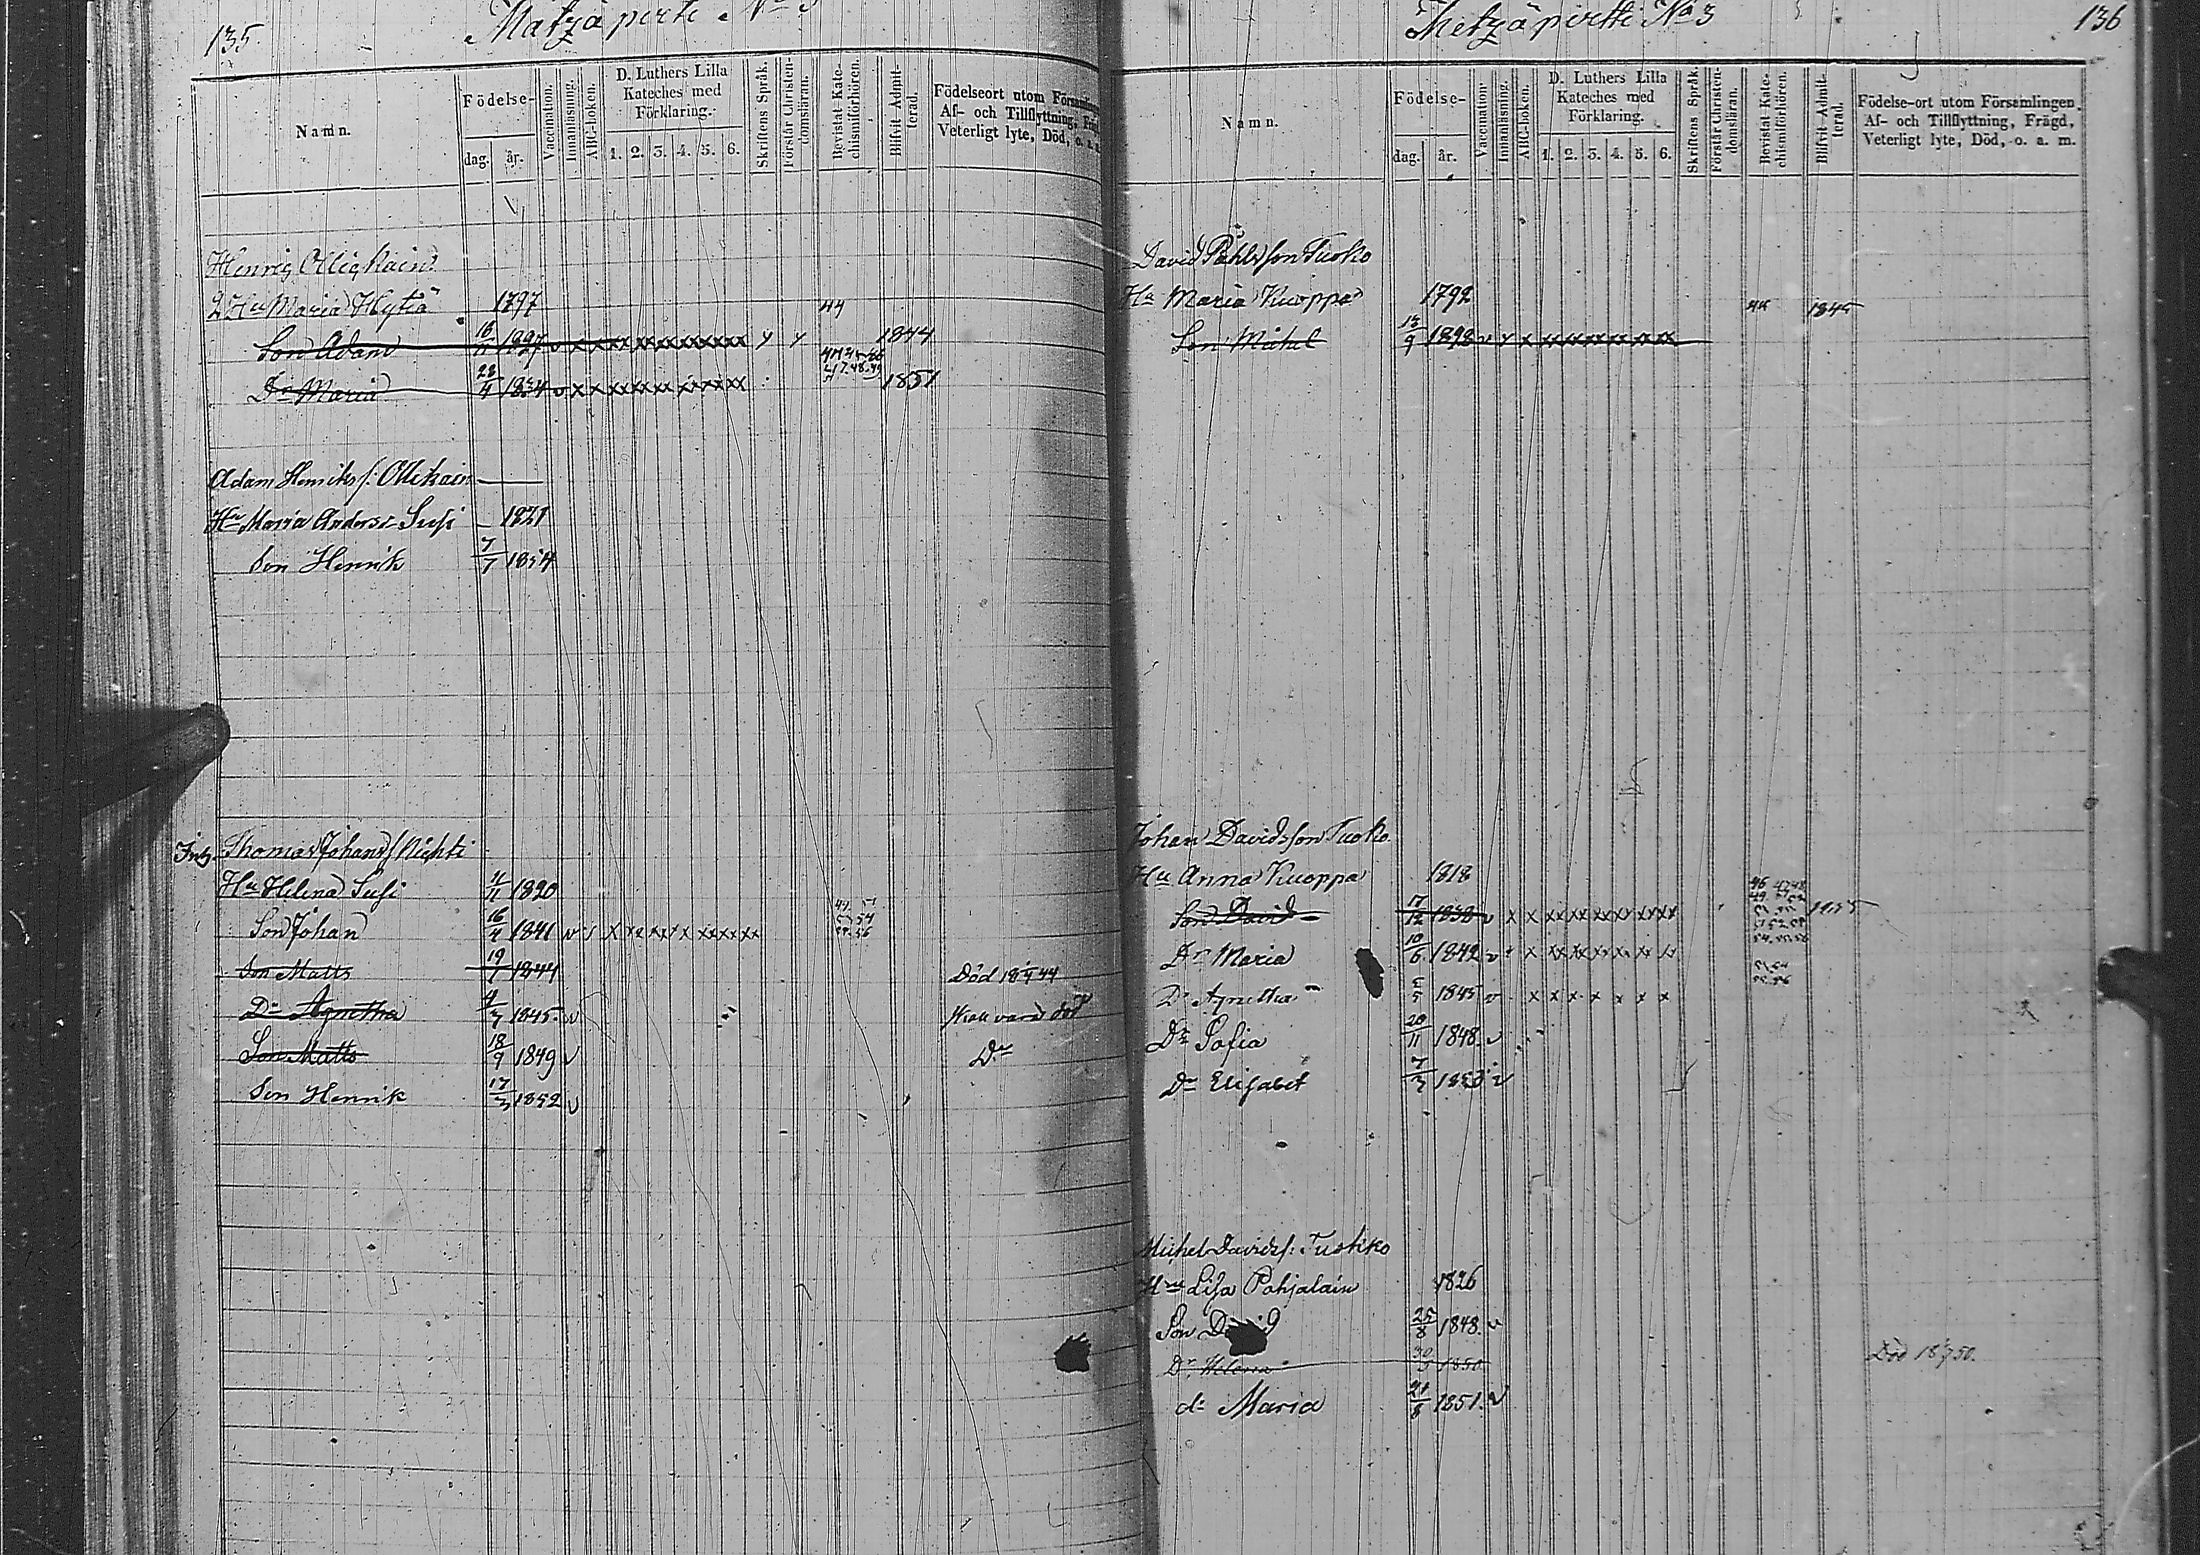 135.
Mätzäpertti No 3
Namn.
Födelse-
dag. år.
Vaccination.
Innanläsning.
ABC-boken.
D. Luthers Lilla Kateches med Förklaring.
1. 2. 3. 4. 5. 6.
Skriftens Språk.
Förstår Christendomsläran.
Bevistat Katechismiförhören.
Blifvit Admitterad.
Födelseort utom Församlingen
Af- och Tillflyttning, Frägd,
Veterligt lyte, Död, o. a. m.
Henrig Ollickain
2 Hu Maria Hytiä 1797 44
Son Adam 16/11 1827 v x x xxxxxxxxxxx y y 1844
Dr Maria 23/4 1834 v x x xxxxxx xxxxxx 1851
Adam Henriks s: Ollikain
Hu Maria Anders d. Susi 1821
Son Henrik 7/7 1854
Thomas Johans s. Nichti
Hu Helena Susi 4/11 1820
Son Johan 16/4 1841
Son Matts 19/1 1844 Död 18 44
Dr Agnetha 4/7 1845. v vara död
Son Matts 18/9 1849 v Dr
Son Henrik 17/3 1852 v
Metzäpirtti No 3
136
Namn.
Födelse-
dag. år.
Vaccination.
Innanläsning.
ABC-boken.
D. Luthers Lilla Kateches med Förklaring.
1. 2. 3. 4. 5. 6.
Skriftens Språk.
Förstår Christendomsläran.
Bevistat Katechismiförhören.
Blifvit Admitterad.
Födelse-ort utom Församlingen
Af- och Tillflyttning, Frägd,
Veterligt lyte, Död, o. a. m.
David Påhlsson Tuoko
Hu Maria Kuoppa 1792 44 1845
Son Michel 13/9 1828 v v x xxxxxxxxx
Johan Davidsson Tuoko
Hu Anna Kuoppa 1818
Son David 17/12 1838 v x x xxxxxxxxxxx
Dr Maria 10/6 1842 v
Dr Agnetha 5/5 1845 v x x x x x x x
Dr Sofia 20/11 1848. v
Dr Elisabet 7/3 1853 v
Michel Davids s: Tuokko
Hu Lisa Pohjalain 1826
Son David 25/8 1848. v
Dr Helena 30/5 1850 Död 18 50.
dr Maria 21/8 1851. v